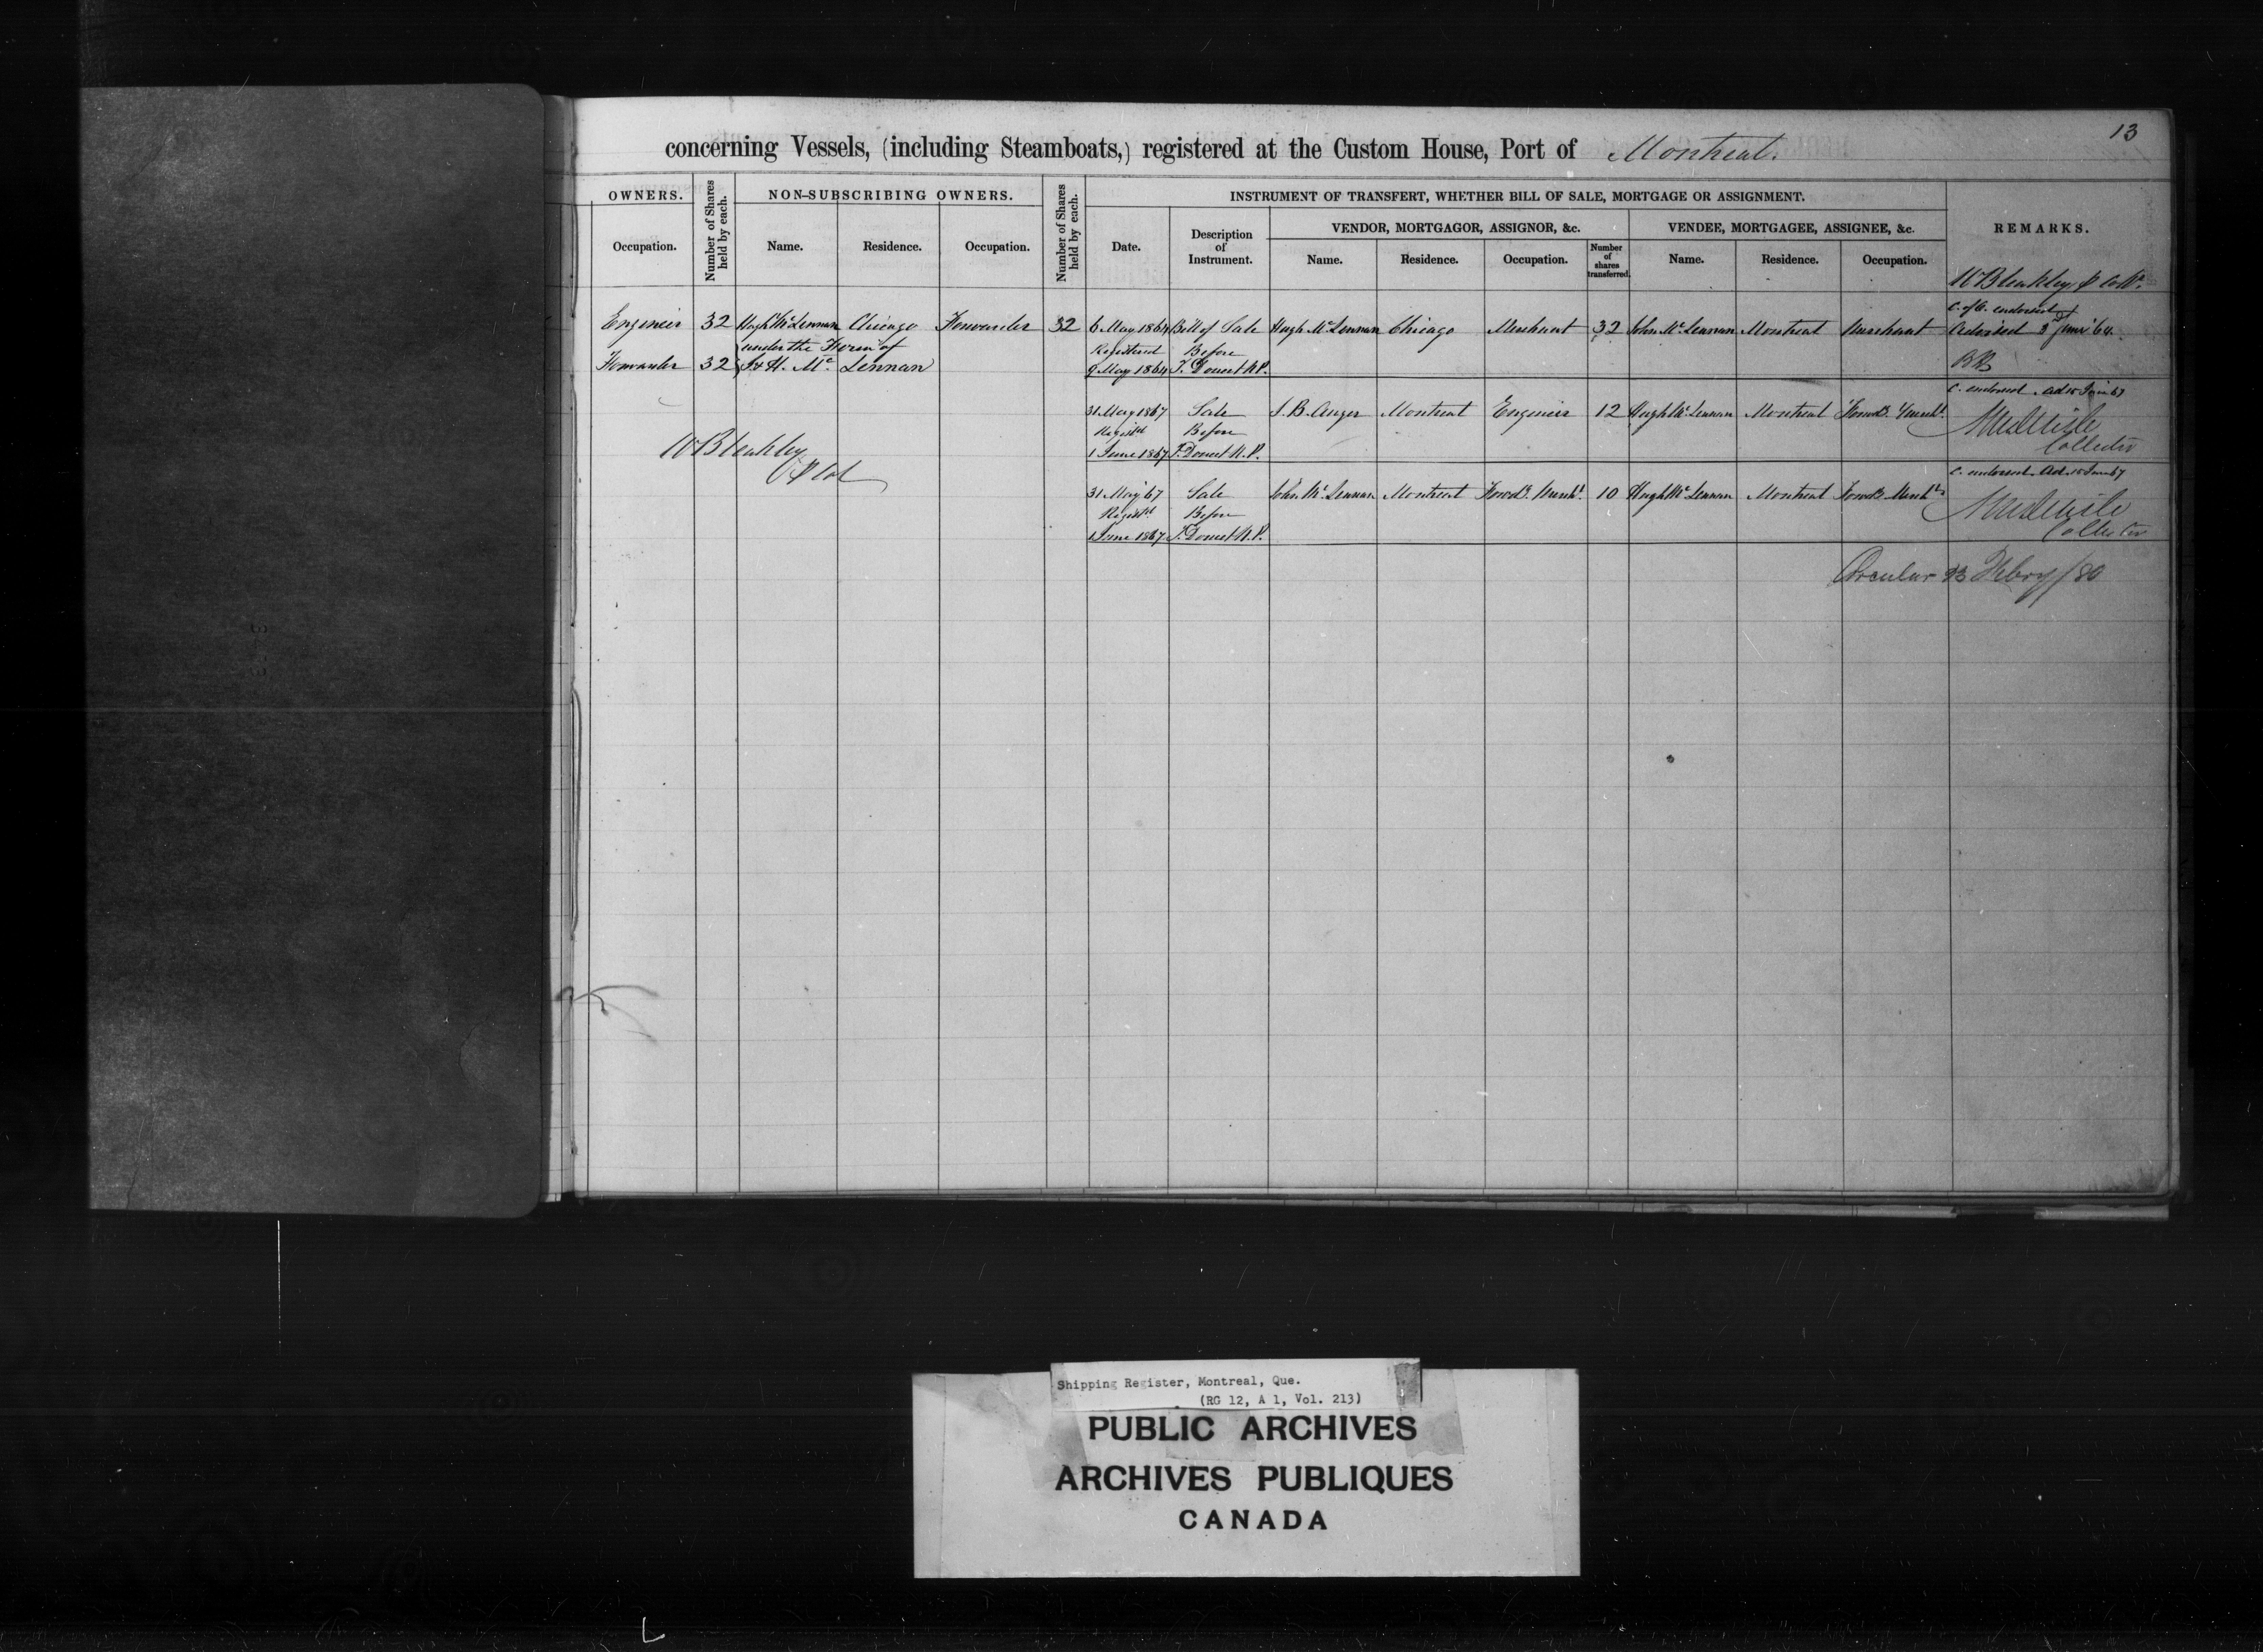 13
concerning Vessels, (including Steamboats,) registered at the Custom House, Port of Montreal.
OWNERS.
Number of Shares held by each.
NON-SUBSCRIBING OWNERS.
Number of Shares held by each.
INSTRUMENT OF TRANSFERT, WHETHER BILL OF SALE, MORTGAGE OR ASSIGNMENT.
REMARKS.
VENDOR, MORTGAGOR, ASSIGNOR, &c.
VENDEE, MORTGAGEE, ASSIGNEE, &c.
Occupation.
Name.
Residence.
Occupation.
Date.
Description of Instrument.
Name.
Residence.
Occupation.
Number of shares transferred.
Name.
Residence.
Occupation.
W Bleakley
C. of O. endorsed
Engineer 32 Hugh Mc Lennan Chicago Forwarder 32 6 May 1864 Bill of Sale Hugh Mc Lennan Chicago Merchant 32 John Mc Lennan Montreal Merchant Advised 3 June '64
under the Firm of Registered Before
Forwarder 32 J & H. Mc Lennan 9 May 1864 T. Doucet N.P.
C. endorsed Ad 15 June 67
31 May 1867 Sale S. B. Anger Montreal Engineer 12 Hugh Mc Lennan Montreal Forwd. & Mercht.
Registd Before
1 June 1867 T. Doucet N.P. Collector
W Bleakley
C. endorsed Ad 15 June 67
31 May 67 Sale John Mc Lennan Montreal Forwd. Mercht. 10 Hugh Mc Lennan Montreal Forwd. Mercht.
Registd Before
1 June 1867 T. Doucet N.P. Collector
Circular 23 Febry /80
Shipping Register, Montreal, Que.
(RG 12, A 1, Vol. 213)
PUBLIC ARCHIVES
ARCHIVES PUBLIQUES
CANADA